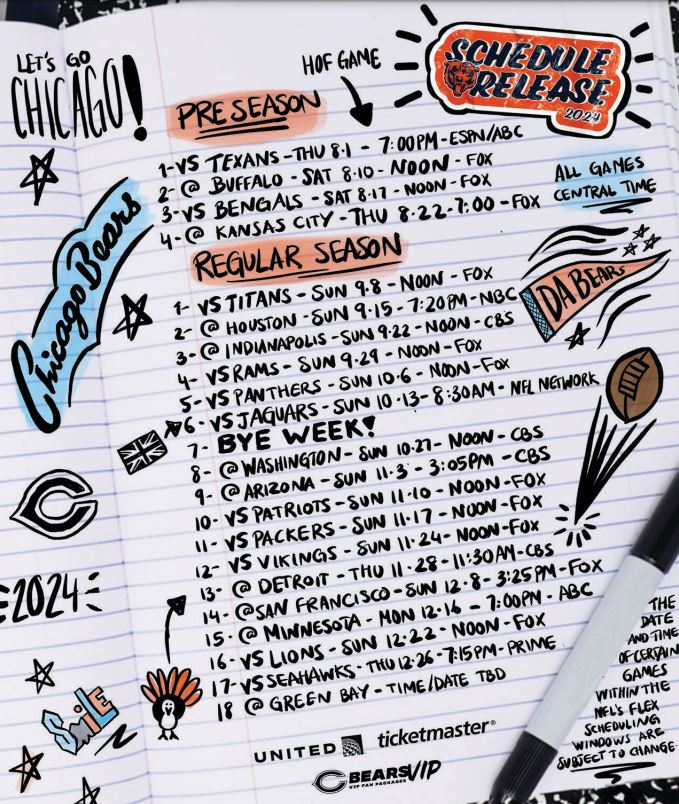 LET'S GO
CHICAGO!
HOF GAME
SCHEDULE
RELEASE
2024
PRESEASON
1-VS TEXANS-THU 8.1 - 7:00PM-ESPN/ABC
2- @ BUFFALO - SAT 8.10 - NOON - FOX
3-VS BENGALS - SAT 8.17 - NOON - FOX
4- @ KANSAS CITY - THU 8.22-7:00 - FOX
ALL GAMES
CENTRAL TIME
Chicago Bears
REGULAR SEASON
1- VS TITANS - SUN 9.8 - NOON - FOX
2- @ HOUSTON - SUN 9.15 - 7:20PM-NBC
3- @ INDIANAPOLIS - SUN 9.22 - NOON - CBS
4- VS RAMS - SUN 9.29 - NOON-FOX
5- VS PANTHERS - SUN 10.6 - NOON-FOX
6- VS JAGUARS-SUN 10.13- 8:30AM - NFL NETWORK
7- BYE WEEK!
8- @ WASHINGTON - SUN 10.27 - NOON - CBS
9- @ ARIZONA - SUN 11.3 - 3:05PM - CBS
10- VS PATRIOTS - SUN 11.10 - NOON-FOX
11- VS PACKERS - SUN 11.17 - NOON-FOX
12- VS VIKINGS - SUN 11.24 - NOON-FOX
13- @ DETROIT - THU 11.28 - 11:30AM-CBS
14- @SAN FRANCISCO-SUN 12.8 - 3:25PM-FOX
15- @ MINNESOTA - MON 12.16 - 7:00PM - ABC
16- VS LIONS - SUN 12.22 - NOON-FOX
17- VS SEAHAWKS-THU 12.26 - 7:15PM- PRIME
18 @ GREEN BAY - TIME/DATE TBD
DA BEARS
C
2024
SMILE
THE
DATE
AND TIME
OF CERTAIN
GAMES
WITHIN THE
NFL'S FLEX
SCHEDULING
WINDOWS ARE
SUBJECT TO CHANGE
UNITED ticketmaster®
BEARS VIP
VIP FAN PACKAGES